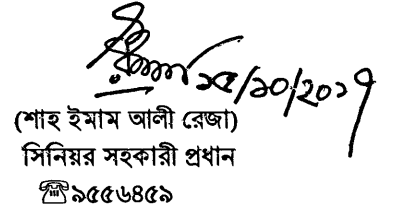 ১৫/১০/২০১৭
(শাহ ইমাম আলী রেজা)
সিনিয়র সহকারী প্রধান
☎৯৫৫৬৪৫৯